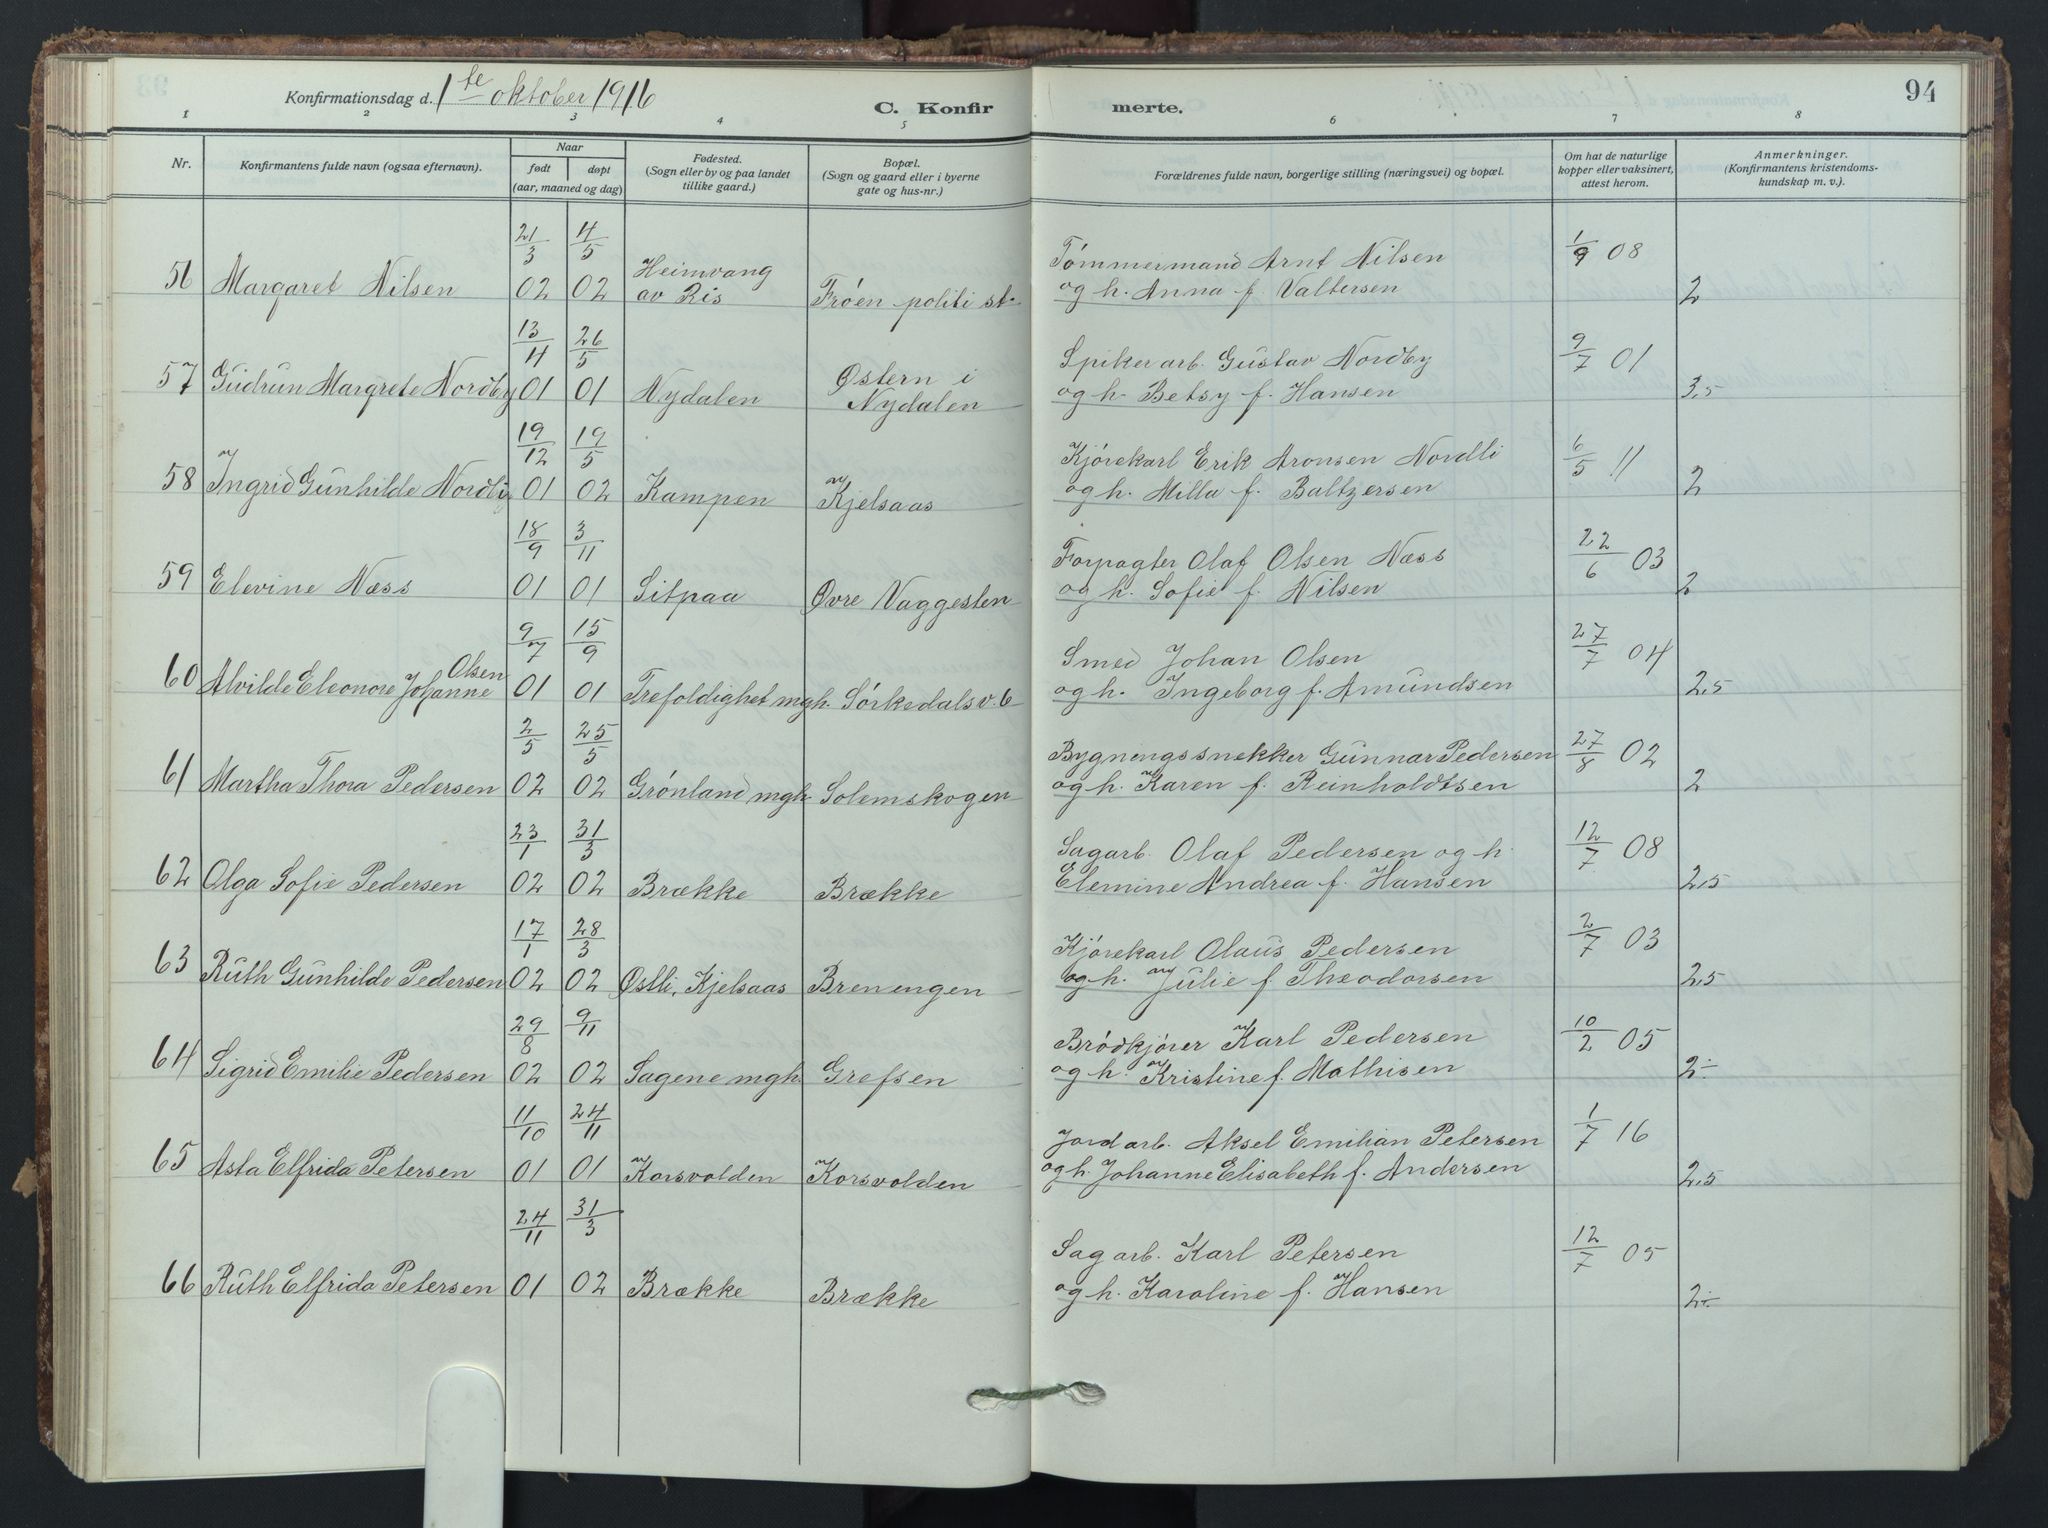 94
Konfirmationsdag d. 1ste oktober 1916
C. Konfirmerte.
1 2 3 4 5 6 7 8
Nr.
Konfirmantens fulde navn (ogsaa efternavn).
Naar
født døpt
(aar, maaned og dag)
Fødested.
(Sogn eller by og paa landet
tillike gaard.)
Bopæl.
(Sogn og gaard eller i byerne
gate og hus-nr.)
Forældrenes fulde navn, borgerlige stilling (næringsvei) og bopæl.
Om hat de naturlige
kopper eller vaksinert,
attest herom.
Anmerkninger.
(Konfirmantens kristendoms-
kundskap m. v.).
56 Margaret Nilsen 21/3 02 4/5 02 Heimvang av Ris Frøen politi st. Tømmermand Arnt Nilsen 1/9 08
og h. Anna f. Valtersen 2
57 Gudrun Margrete Nordby 13/4 01 26/5 01 Nydalen Østern i Nydalen Spikerarb. Gustav Nordby 9/7 01
og h. Betsy f. Hansen 3,5
58 Ingrid Gunhilde Nordli 19/12 01 19/5 02 Kampen Kjelsaas Kjørekarl Erik Aronsen Nordli 6/5 11
og h. Milla f. Baltzersen 2
59 Elevine Næss 18/9 01 3/11 01 Sitpaa Øvre Vaggesten Forpagter Olaf Olsen Næss 22/6 03
og h. Sofie f. Nilsen 2
60 Alvilde Eleonore Johanne Olsen 9/7 01 15/9 01 Trefoldighet mgh. Sørkedalsv. 6 Smed Johan Olsen 27/7 04
og h. Ingeborg f. Amundsen 2,5
61 Martha Thora Pedersen 2/5 02 25/5 02 Grønland mgh. Solemskogen Bygningssnekker Gunnar Pedersen 27/8 02
og h. Karen f. Reinholdtsen 2
62 Olga Sofie Pedersen 23/1 02 31/3 02 Brække Brække Sagarb. Olaf Pedersen og h. 12/7 08
Elemine Andrea f. Hansen 2,5
63 Ruth Gunhilde Pedersen 17/1 02 28/3 02 Østli, Kjelsaas Brenengen Kjørekarl Olaus Pedersen 2/7 03
og h. Julie f. Theodorsen 2,5
64 Sigrid Emilie Pedersen 29/8 02 9/11 02 Sagene mgh. Grefsen Brødkjører Karl Pedersen 10/2 05
og h. Kristine f. Mathisen 2÷
65 Asta Elfrida Petersen 11/10 01 24/11 01 Korsvolden Korsvolden Jordarb. Aksel Emilian Petersen 1/7 16
og h. Johanne Elisabeth f. Andersen 2,5
66 Ruth Elfrida Petersen 24/11 01 31/3 02 Brække Brække Sagarb. Karl Petersen 12/7 05
og h. Karoline f. Hansen 2÷